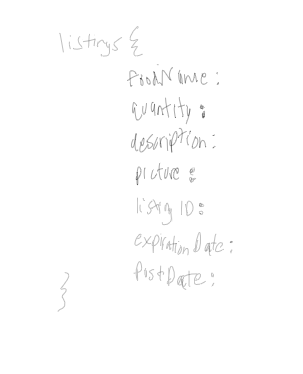 listings {
foodName :
quantity :
description :
picture :
listing ID :
expiration Date :
Post Date :
}